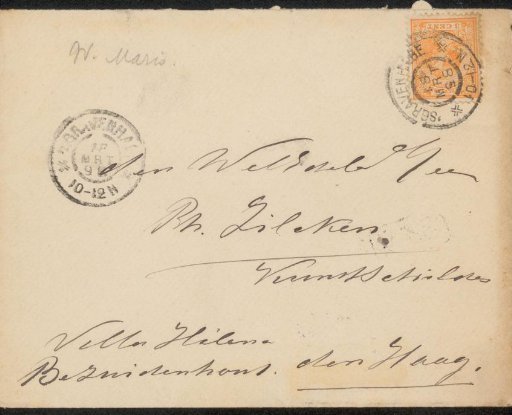 W. Maris.
CENT
'SGRAVENHAGE
10-12N
'SGRAVENHAGE
MRT
10-12N
den WelEdele Heer
Ph. Zilcken
Kunstschilder
Villa Hélène
Bezuidenhout. den Haag.